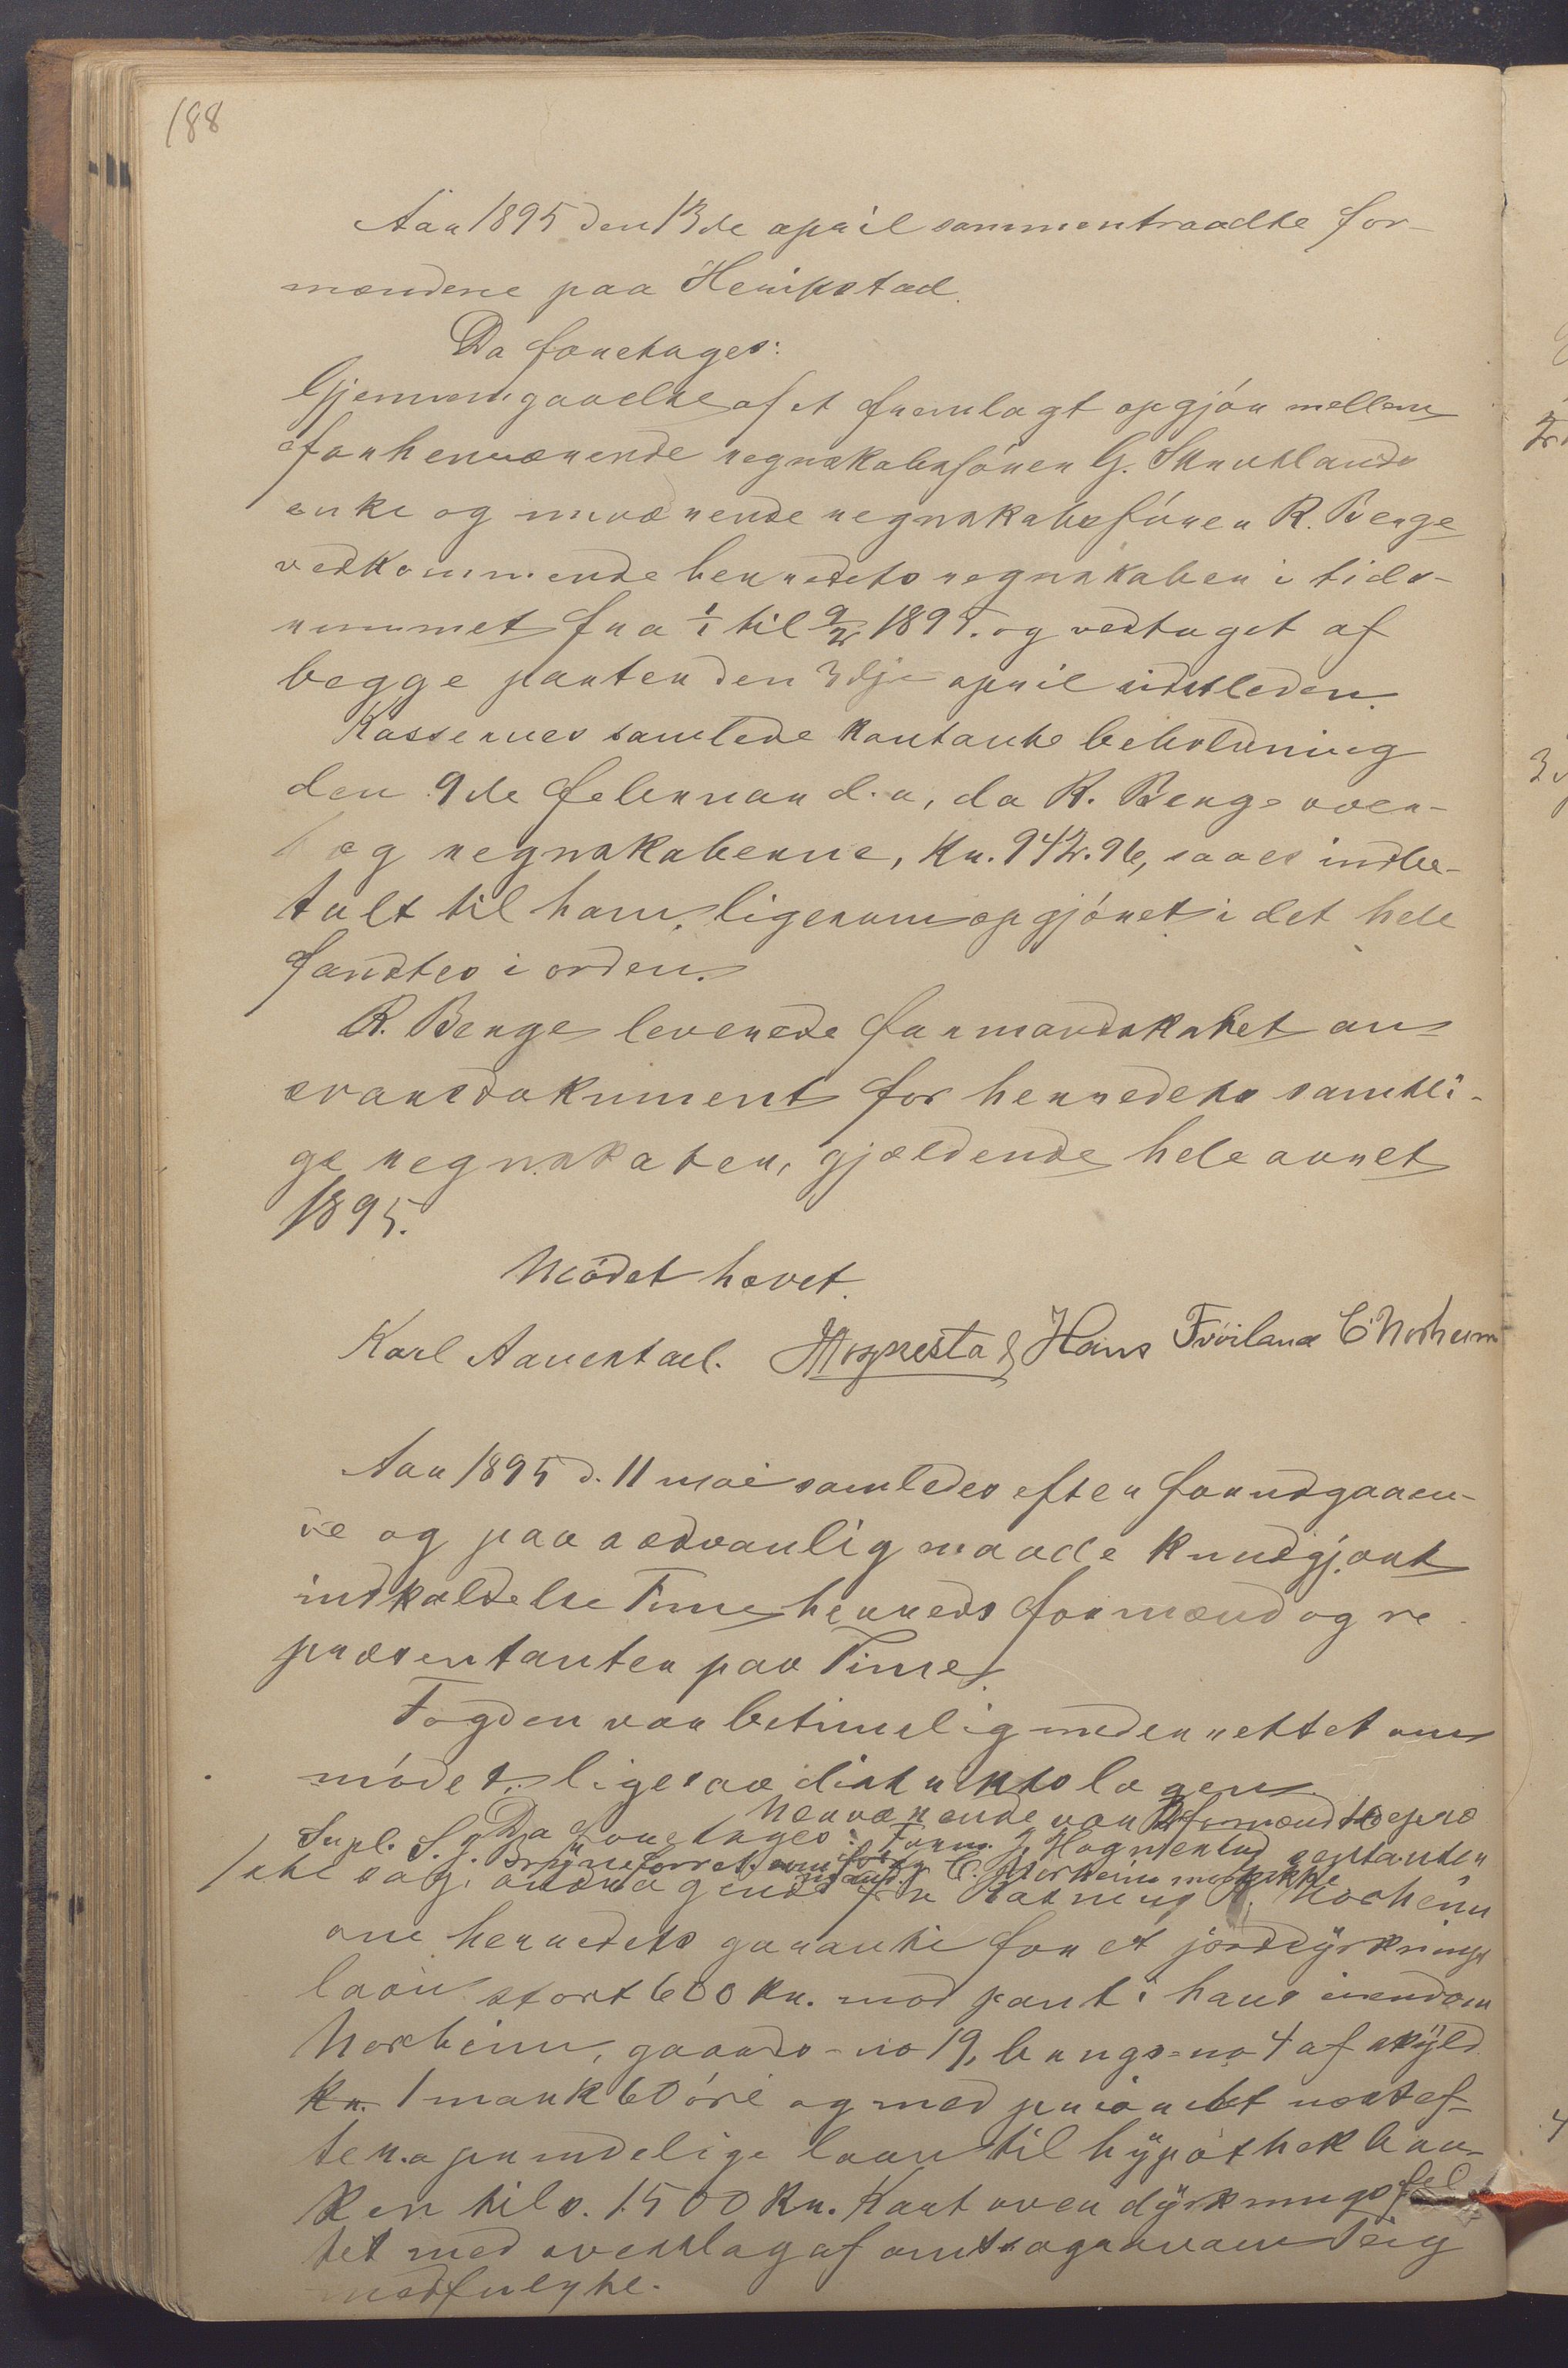 188
Aar 1895 den 13de april sammentraadte for-
mændene paa Herikstad.
Da foretages:
Gjennemgaaelse af et fremlagt opgjør mellem
forhenværende regnskabsfører G. Skrudlands
enke og nuværende regnskabsfører R. Berge
vedkommende herredets regnskaber i tids-
rummet fra 1/1 til 9/2 1895. og vedtaget af
begge parter den 3dje april sidstleden.
Kassernes samlede kontante beholdning
den 9de februar d. a, da R. Berge over-
tog regnskaberne, Kr. 942.96, saaes indbe-
talt til ham, ligesom opgjøret i det hele
fandtes i orden.
R. Berge leverede formandskabet an
svarsdokument for herredets samtli-
ge regnskaber, gjældende hele aaret
1895.
Mødet hævet.
Karl Aarestad. Hans Frøiland C Norheim
Aar 1895 d. 11 mai samledes efter forudgaaen-
de og paa sædvanlig maade kundgjort
indkaldelse Time herreds formænd og re
præsentanter paa Time.
Fogden var betimelig underrettet om
mødet, ligesaa distriktslægen.
Nærværende var formænd 10 repræ
Da foretages: Form. Hognestad sentanter
Supl. S. J. Bryne C. Norheim mødte ikke
1ste sag, andragende fra Norheim
om herredets garanti for et jorddyrknings
laan stort 600 Kr. mod pant i hans eiendom
Norheim, gaards-no 19, brugs-no 4 af skyld
Kr. 1 mark 60 øre og med prioritet næstef-
ter oprindelige laan til hypothekban-
ken tils. 1500 Kr. Kart over dyrkningsfel
tet med overslag af amtsagronom Teig
medfulgte.